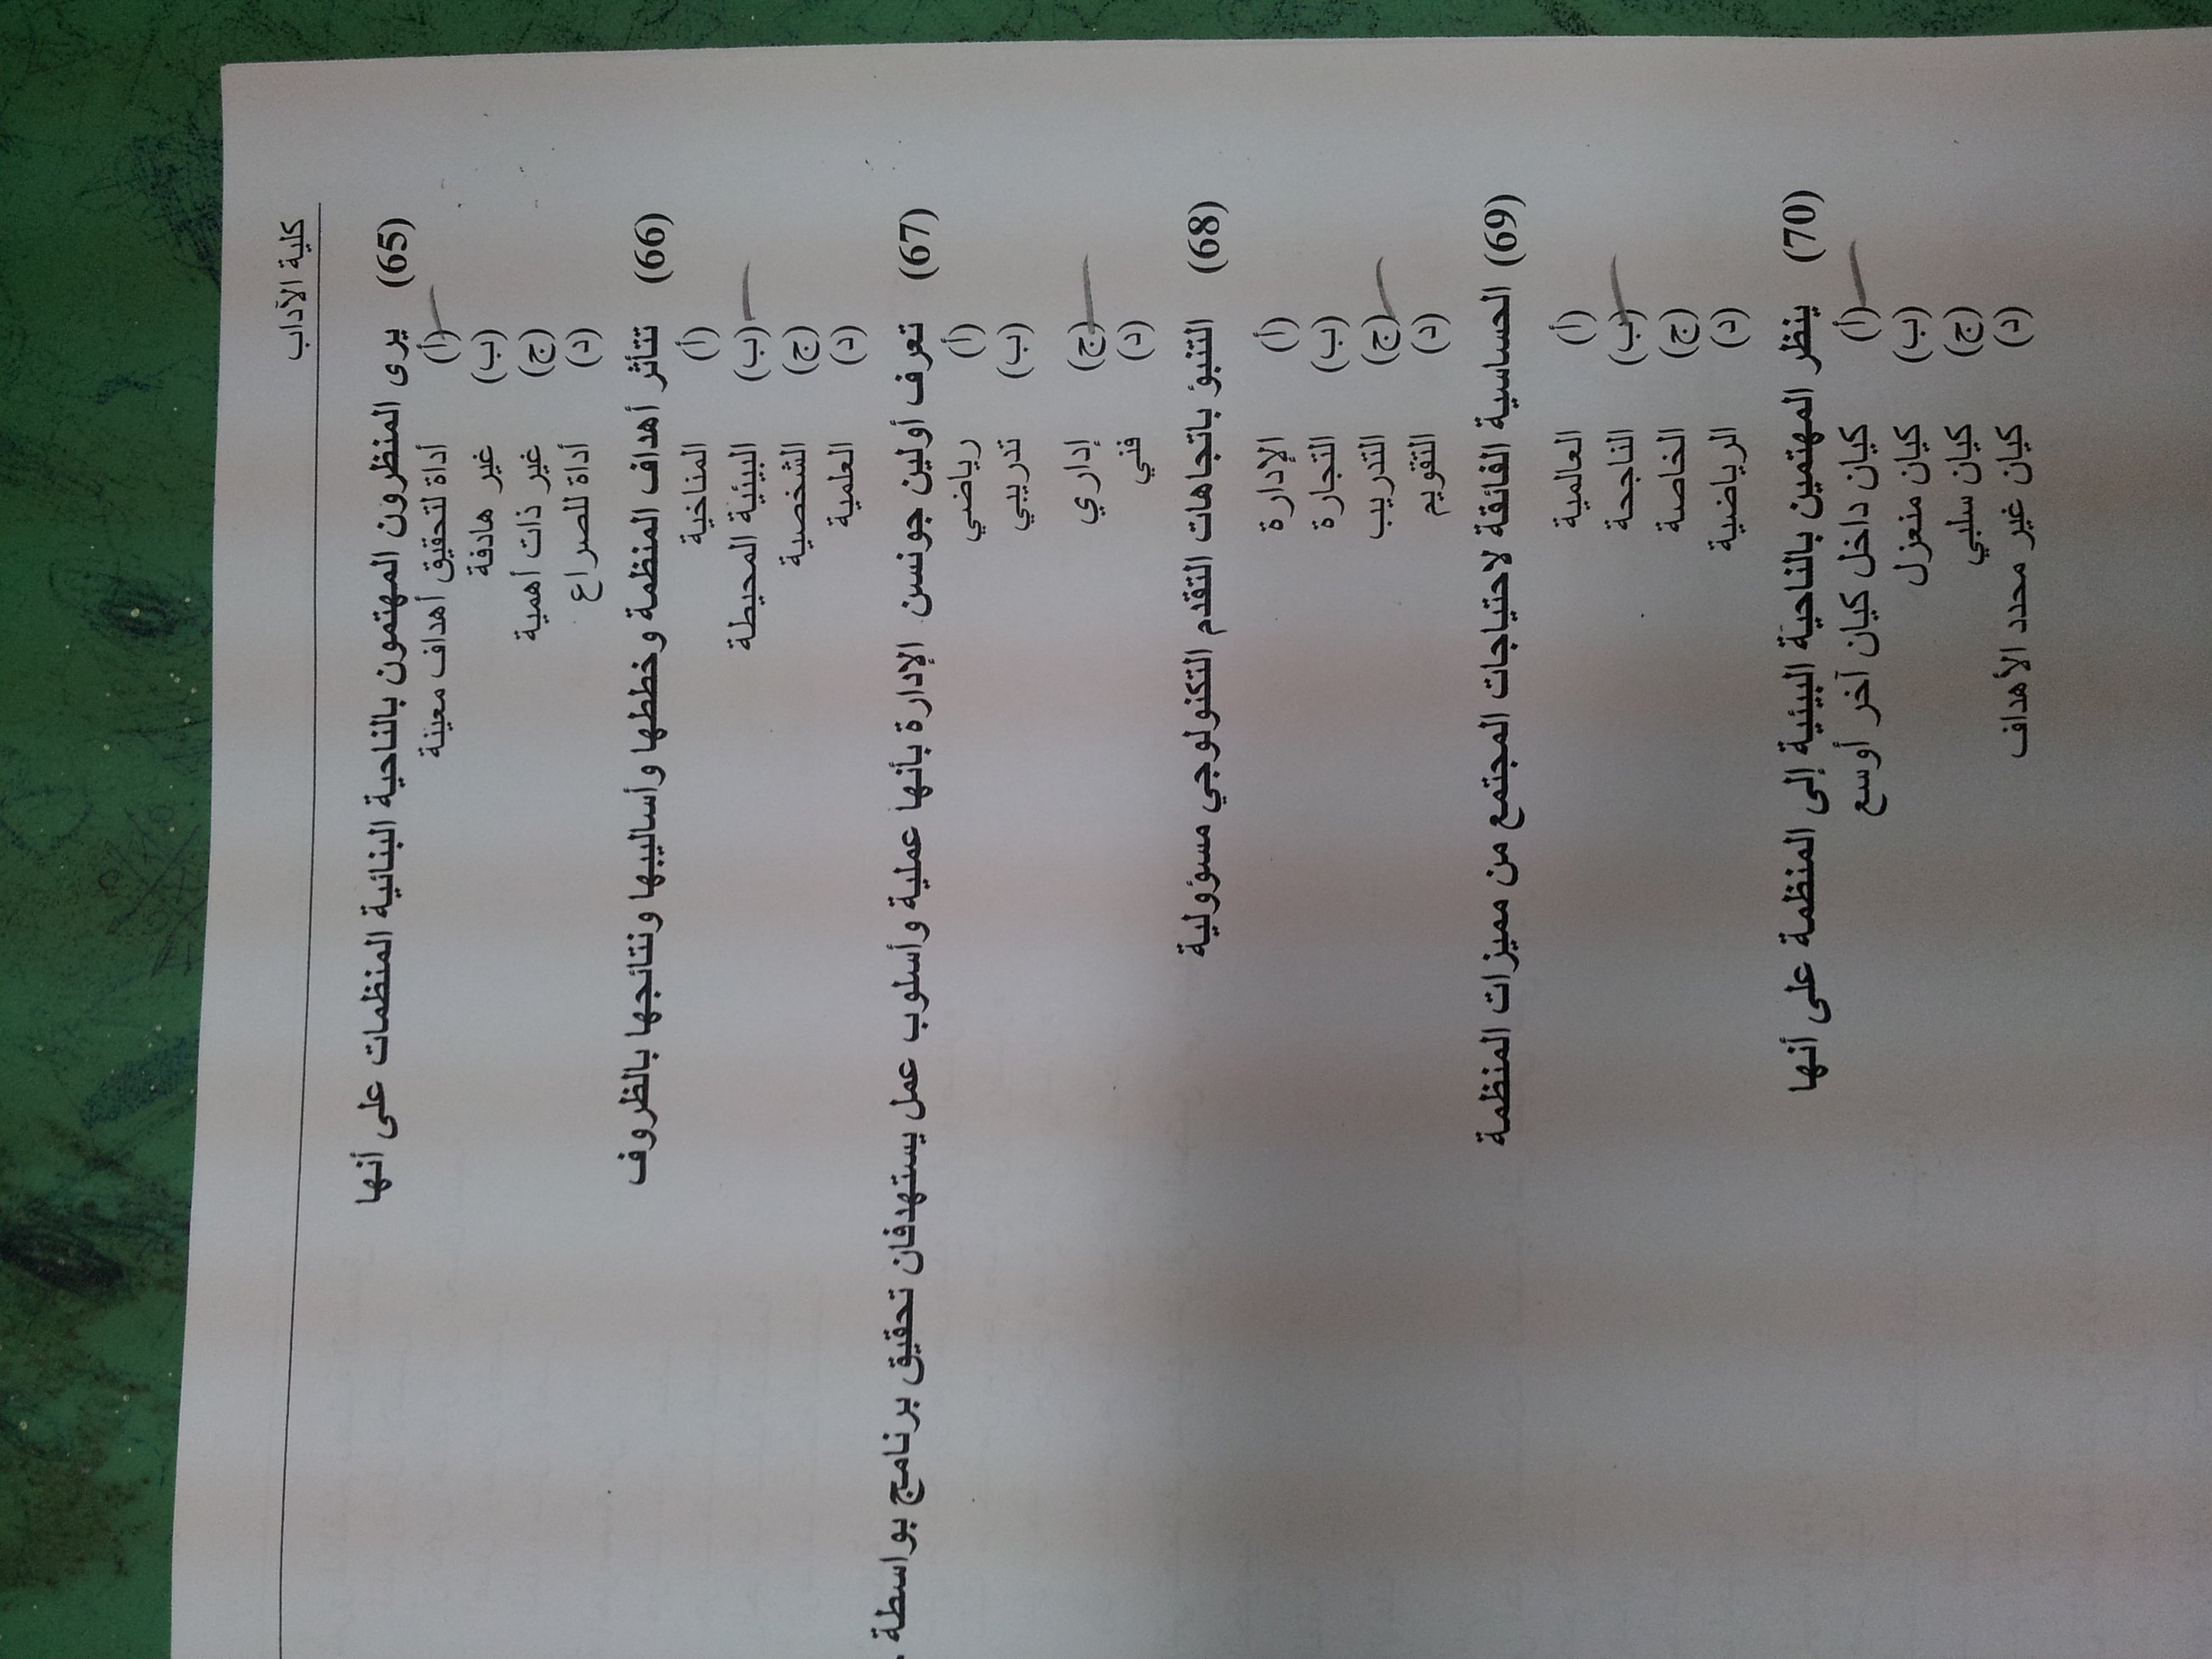 كلية الآداب
(65) يرى المنظرون المهتمون بالناحية البنائية المنظمات على أنها
(أ) أداة لتحقيق أهداف معينة
(ب) غير هادفة
(ج) غير ذات أهمية
(د) أداة للصراع
(66) تتأثر أهداف المنظمة وخططها وأساليبها ونتائجها بالظروف
(أ) المناخية
(ب) البيئية المحيطة
(ج) الشخصية
(د) العلمية
(67) تعرف أولين جونسن الإدارة بأنها عملية وأسلوب عمل يستهدفان تحقيق برنامج بواسطة
(أ) رياضي
(ب) تدريبي
(ج) إداري
(د) فني
(68) التنبؤ باتجاهات التقدم التكنولوجي مسؤولية
(أ) الإدارة
(ب) التجارة
(ج) التدريب
(د) التقويم
(69) الحساسية الفائقة لاحتياجات المجتمع من مميزات المنظمة
(أ) العالمية
(ب) الناجحة
(ج) الخاصة
(د) الرياضية
(70) ينظر المهتمين بالناحية البيئية إلى المنظمة على أنها
(أ) كيان داخل كيان آخر أوسع
(ب) كيان منعزل
(ج) كيان سلبي
(د) كيان غير محدد الأهداف